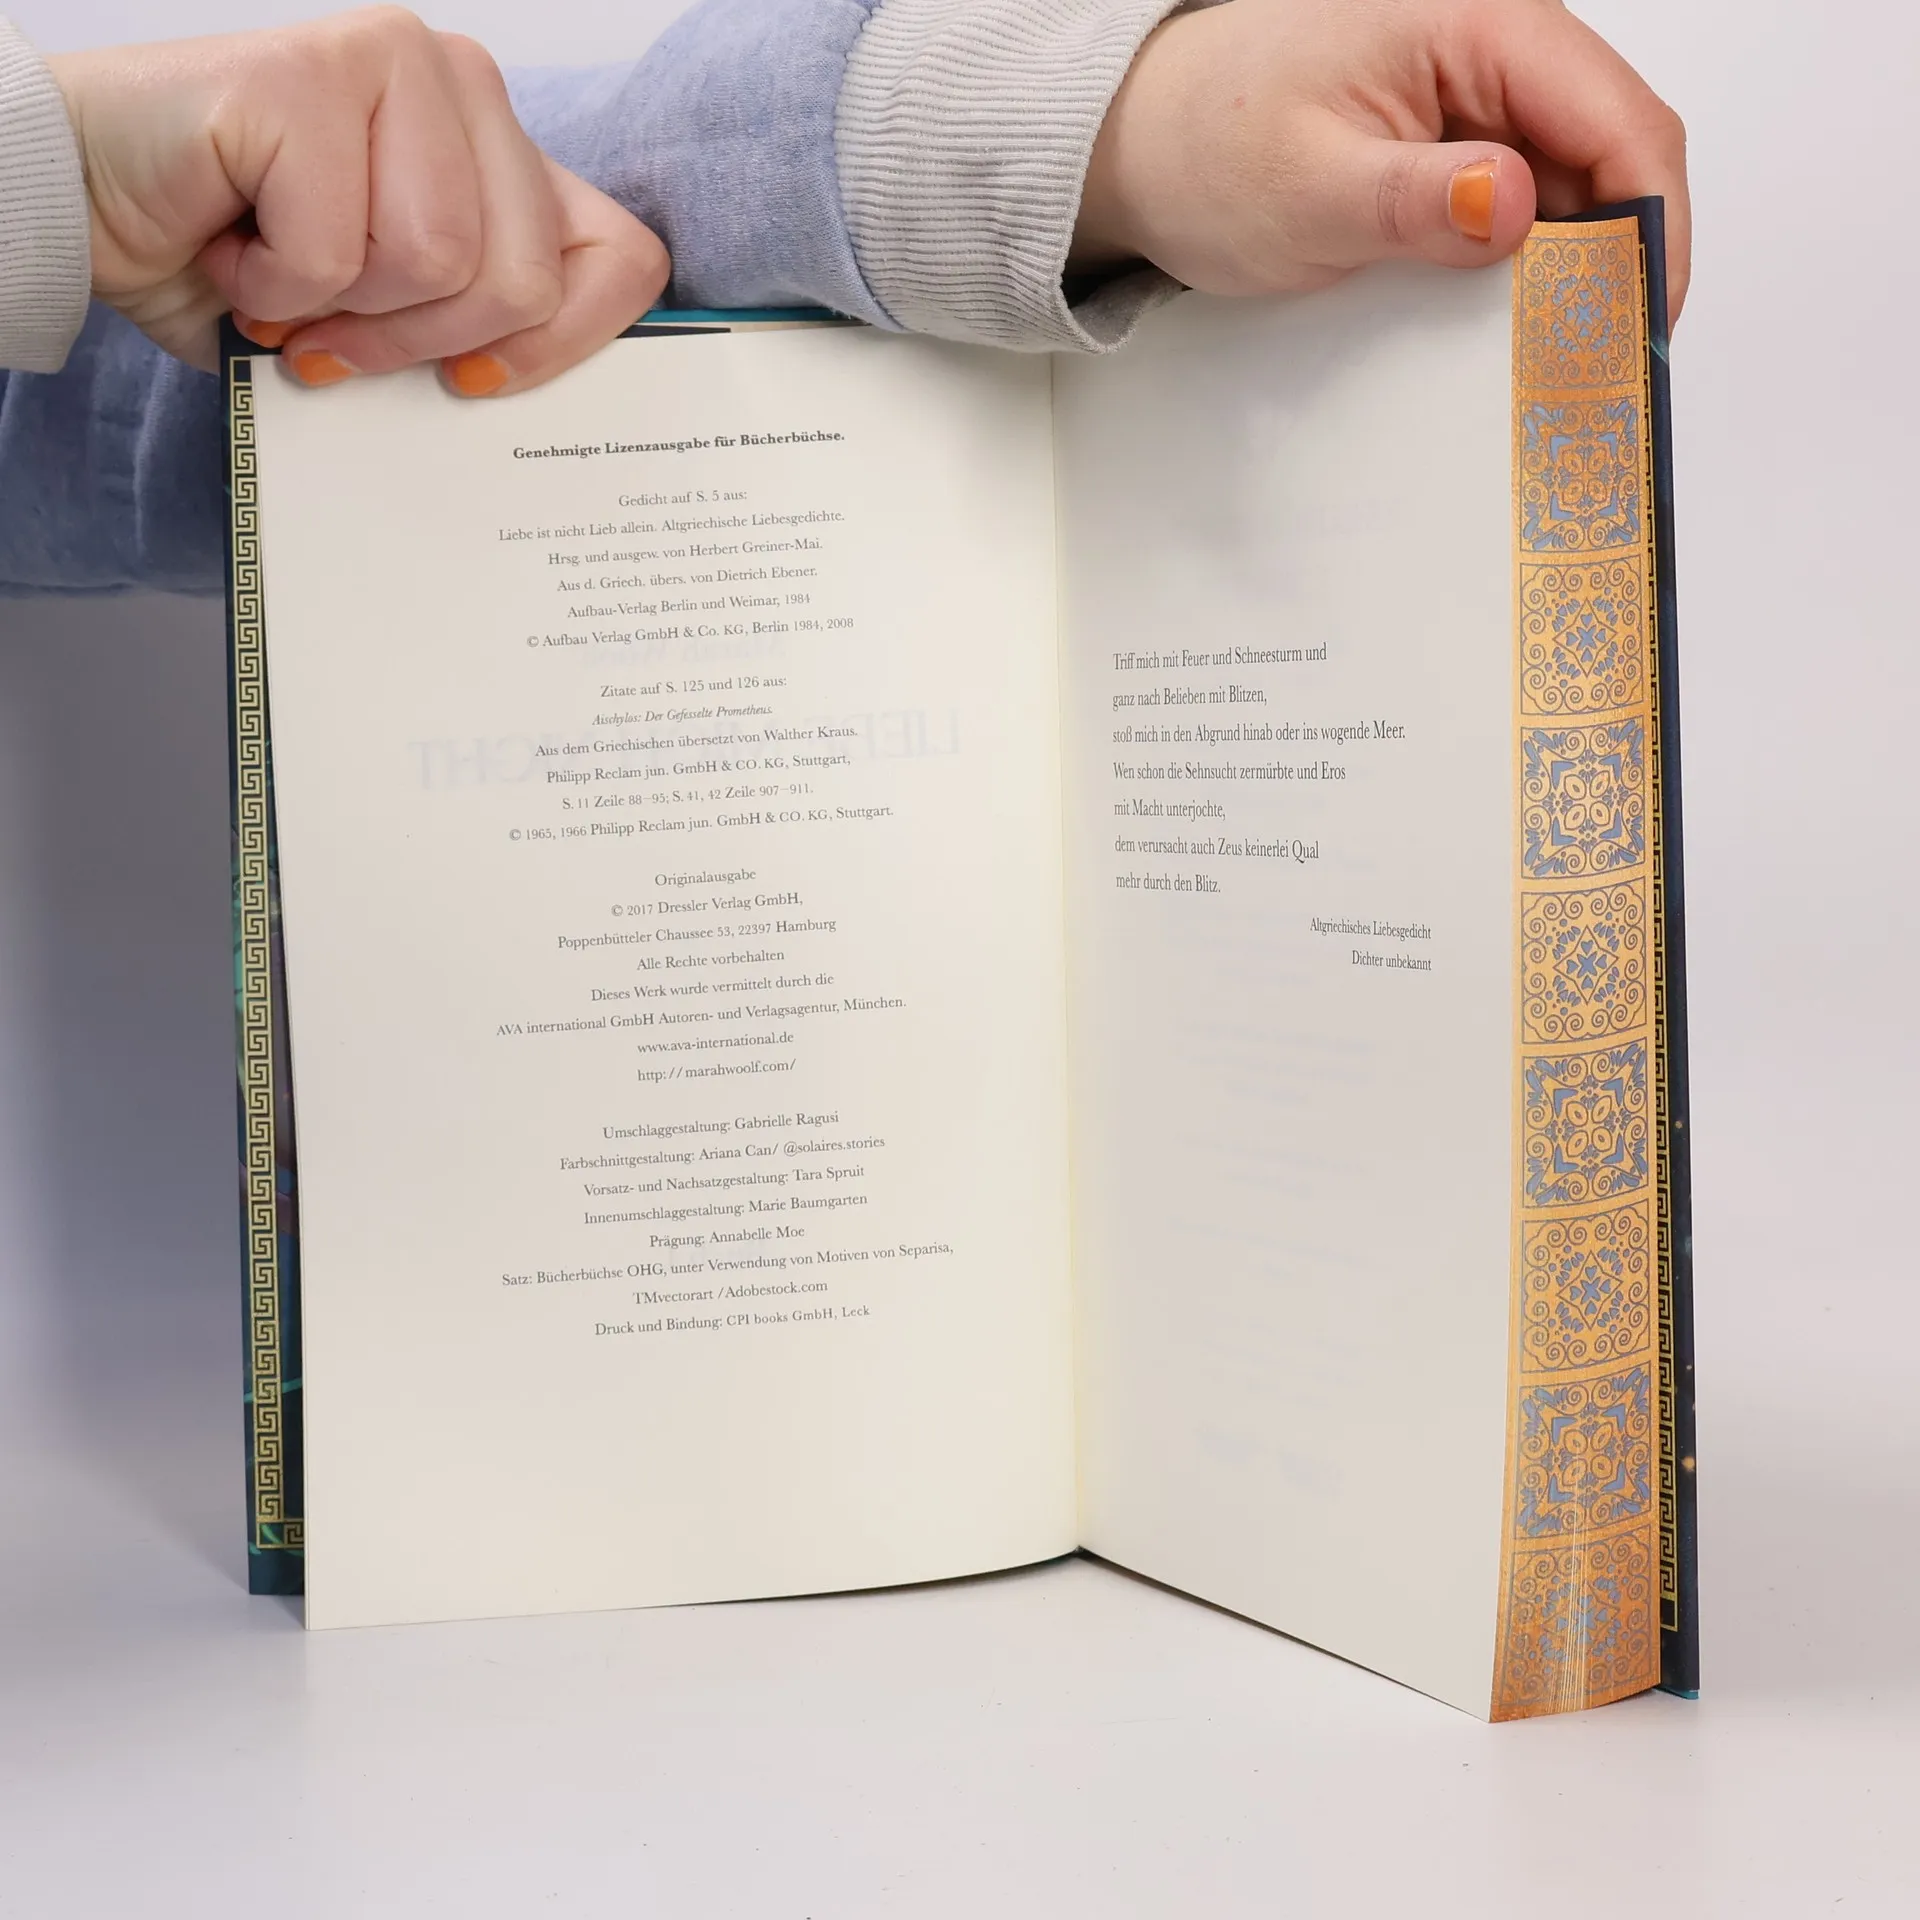 Genehmigte Lizenzausgabe für Bücherbüchse.
Gedicht auf S. 5 aus:
Liebe ist nicht Lieb allein. Altgriechische Liebesgedichte.
Hrsg. und ausgew. von Herbert Greiner-Mai.
Aus d. Griech. übers. von Dietrich Ebener.
Aufbau-Verlag Berlin und Weimar, 1984
© Aufbau Verlag GmbH & Co. KG, Berlin 1984, 2008
Zitate auf S. 125 und 126 aus:
Aischylos: Der Gefesselte Prometheus.
Aus dem Griechischen übersetzt von Walther Kraus.
Philipp Reclam jun. GmbH & CO. KG, Stuttgart,
S. 11 Zeile 88–95; S. 41, 42 Zeile 907–911.
© 1965, 1966 Philipp Reclam jun. GmbH & CO. KG, Stuttgart.
Originalausgabe
© 2017 Dressler Verlag GmbH,
Poppenbütteler Chaussee 53, 22397 Hamburg
Alle Rechte vorbehalten
Dieses Werk wurde vermittelt durch die
AVA international GmbH Autoren- und Verlagsagentur, München.
www.ava-international.de
http://marahwoolf.com/
Umschlaggestaltung: Gabrielle Ragusi
Farbschnittgestaltung: Ariana Can/ @solaires.stories
Vorsatz- und Nachsatzgestaltung: Tara Spruit
Innenumschlaggestaltung: Marie Baumgarten
Prägung: Annabelle Moe
Satz: Bücherbüchse OHG, unter Verwendung von Motiven von Separisa,
TMvectorart /Adobestock.com
Druck und Bindung: CPI books GmbH, Leck
Triff mich mit Feuer und Schneesturm und
ganz nach Belieben mit Blitzen,
stoß mich in den Abgrund hinab oder ins wogende Meer.
Wen schon die Sehnsucht zermürbte und Eros
mit Macht unterjochte,
dem verursacht auch Zeus keinerlei Qual
mehr durch den Blitz.
Altgriechisches Liebesgedicht
Dichter unbekannt